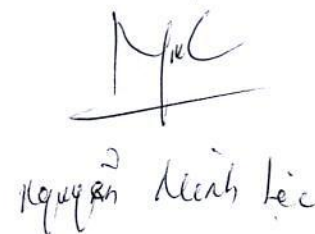 Nguyễn Minh Lộc